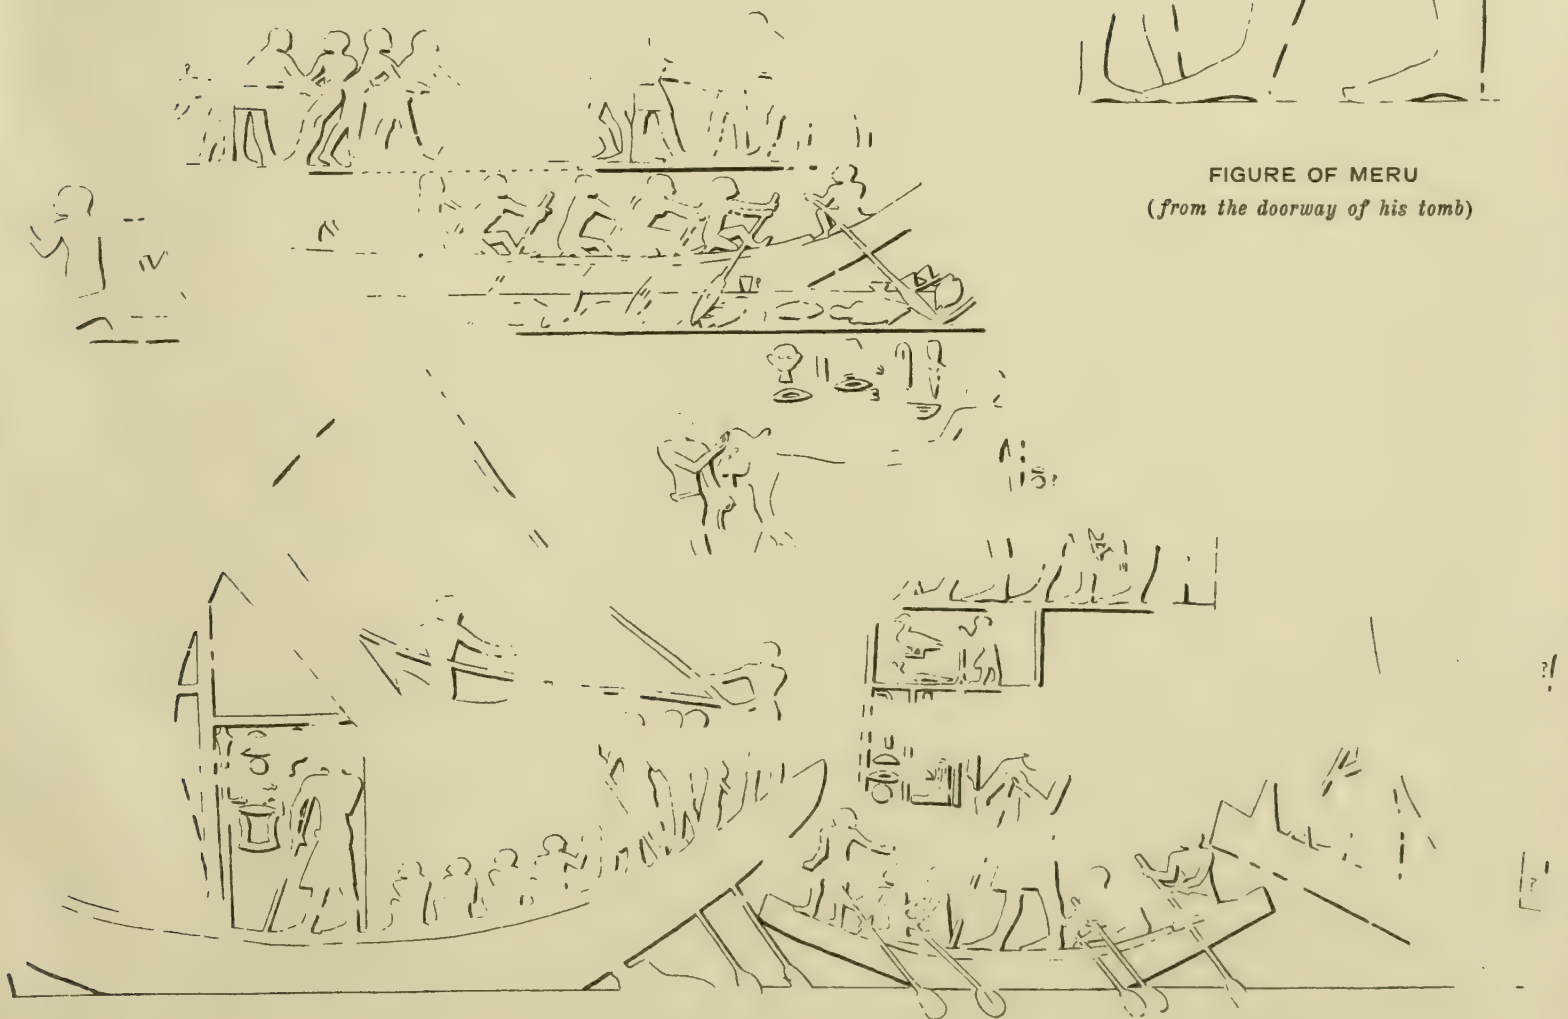 FIGURE OF MERU
(from the doorway of his tomb)